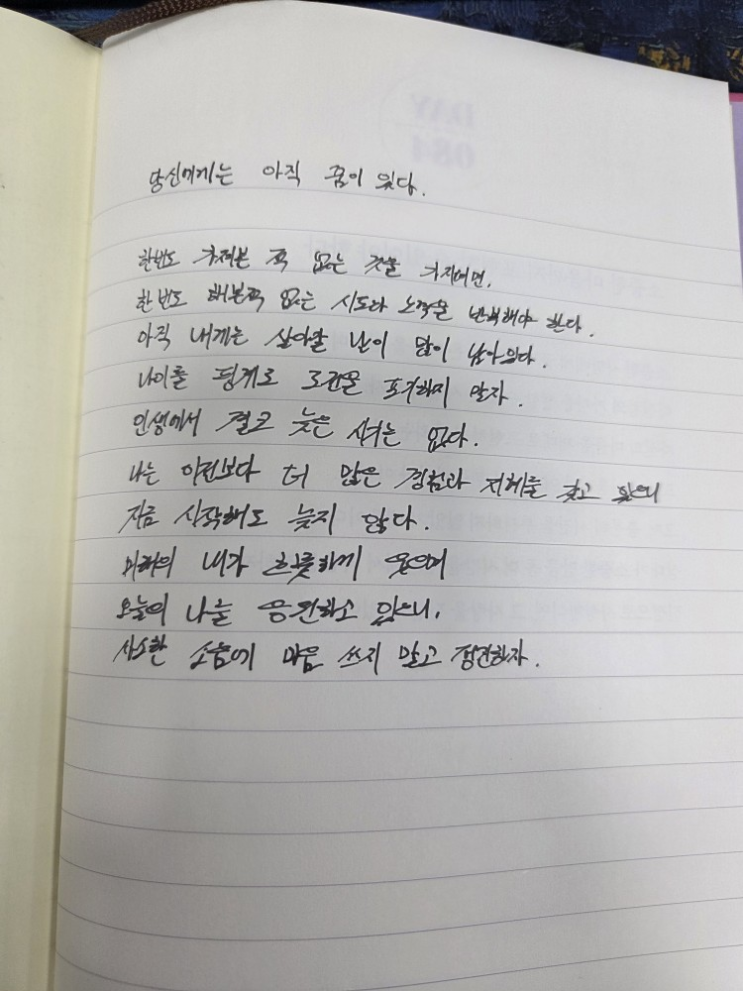 당신에게는 아직 꿈이 있다.
한번도 가져본 적 없는 것을 가지려면,
한번도 해본적 없는 시도와 노력을 반복해야 한다.
아직 내게는 살아갈 날이 많이 남아있다.
나이를 핑계로 도전을 포기하지 말자.
인생에서 결코 늦은 시기는 없다.
나는 이전보다 더 많은 경험과 지혜를 갖고 있으니
지금 시작해도 늦지 않다.
미래의 내가 흐뭇하게 웃으며
오늘의 나를 응원하고 있으니,
사소한 소음에 마음 쓰지 말고 정진하자.